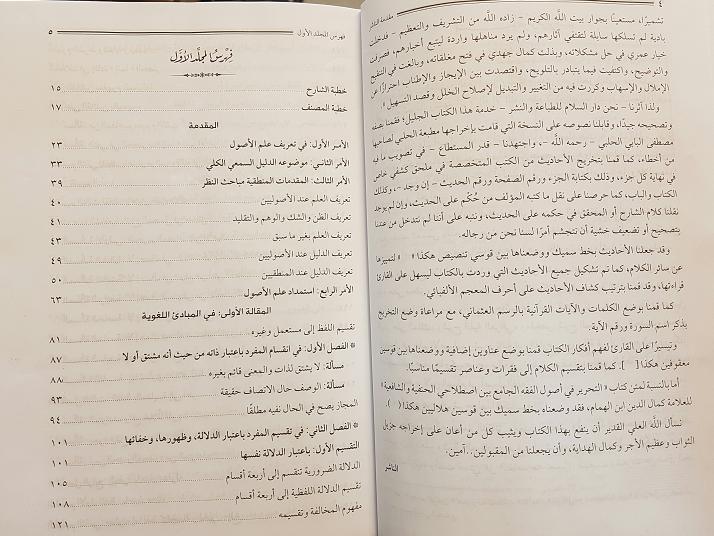 ٤
مقدمة الناشر
تشميرًا، مستعينًا بجوار بيت الله الكريم - زاده الله من التشريف والتعظيم - فدخلت
بادية لم تسلكها سابلة لتقتفي آثارهم، ولم يرد مناهلها واردة ليتبع أخبارهم، فصرفت
خيار عمري في حل مشكلاته، وبذلك كمال جهدي في فتح مغلقاته، وبالغت في التنقيح
والتوضيح، واكتفيت فيما يتبادر بالتلويح، واقتصدت بين الإيجاز والإطناب احترازًا عن
الإملال والإسهاب وكررت فيه من التغيير والتبديل لإصلاح الخلل وقصد التسهيل».
ولذا آثرنا - نحن دار السلام للطباعة والنشر - خدمة هذا الكتاب الجليل؛ فقمنا بصفه
وتصحيحه جيدًا، وقابلنا نصوصه على النسخة التي قامت بإخراجها مطبعة الحلبي لصاحبها
مصطفى البابي الحلبي - رحمه الله -، واجتهدنا - قدر المستطاع - في تصويب ما فيه
من أخطاء، كما قمنا بتخريج الأحاديث من الكتب المتخصصة في ملحق كشفي خاص
في نهاية كل جزء، وذلك بكتابة الجزء ورقم الصفحة ورقم الحديث - إن وجد -، وكذلك
الكتاب والباب، كما حرصنا على نقل ما كتبه المؤلف من حُكْم على الحديث، وإن لم يوجد
نقلنا كلام الشارح أو المحقق في حكمه على الحديث، وننبه على أننا لم نتدخل من عندنا
بتصحيح أو تضعيف خشية أن نتجشم أمرًا لسنا نحن من رجاله.
وقد جعلنا الأحاديث بخط سميك ووضعناها بين قوسي تنصيص هكذا « » لتميزها
عن سائر الكلام، كما تم تشكيل جميع الأحاديث التي وردت بالكتاب ليسهل على القارئ
قراءتها، وقد قمنا بترتيب كشاف الأحاديث على أحرف المعجم الألفبائي.
كما قمنا بوضع الكلمات والآيات القرآنية بالرسم العثماني، مع مراعاة وضع التخريج
بذكر اسم السورة ورقم الآية.
وتيسيرًا على القارئ لفهم أفكار الكتاب قمنا بوضع عناوين إضافية ووضعناها بين قوسين
معقوفين هكذا [ ]. كما قمنا بتقسيم الكلام إلى فقرات وعناصر تقسيمًا مناسبًا.
أما بالنسبة لمتن كتاب «التحرير في أصول الفقه الجامع بين اصطلاحي الحنفية والشافعية»
للعلامة كمال الدين ابن الهمام، فقد وضعناه بخط سميك بين قوسين هلاليين هكذا ( ).
نسأل الله العلي القدير أن ينفع بهذا الكتاب ويثيب كل من أعان على إخراجه جزيل
الثواب وعظيم الأجر وكمال الهداية، وأن يجعلنا من المقبولين. . آمين.
الناشر
فهرس المجلد الأول
٥
فِهْرِسُ المُجَلَّدِ الأَوَّلِ
خطبة الشارح ١٥
خطبة المصنف ١٧
المقدمة
الأمر الأول: في تعريف علم الأصول ٢٣
الأمر الثاني: موضوعه الدليل السمعي الكلي ٣٣
الأمر الثالث: المقدمات المنطقية مباحث النظر ٣٩
تعريف العلم عند الأصوليين ٤٠
تعريف الظن والشك والوهم والتقليد ٤١
تعريف العلم بغير ما سبق ٤٣
تعريف الدليل عند الأصوليين ٤٩
تعريف الدليل عند المنطقيين ٥٠
الأمر الرابع: استمداد علم الأصول ٦٣
المقالة الأولى: في المبادئ اللغوية
تقسيم اللفظ إلى مستعمل وغيره ٨١
* الفصل الأول: في انقسام المفرد باعتبار ذاته من حيث أنه مشتق أو لا ٨٧
مسألة: لا يشتق لذات والمعنى قائم بغيره ٨٨
مسألة: الوصف حال الاتصاف حقيقة ٩٣
المجاز يصح في الحال نفيه مطلقًا ٩٤
* الفصل الثاني: في تقسيم المفرد باعتبار الدلالة، وظهورها، وخفائها ١٠١
التقسيم الأول: باعتبار الدلالة نفسها ١٠١
الدلالة الضرورية تنقسم إلى أربعة أقسام ١٠٥
تقسيم الدلالة اللفظية إلى أربعة أقسام ١٠٨
مفهوم المخالفة وتقسيمه ١٢١